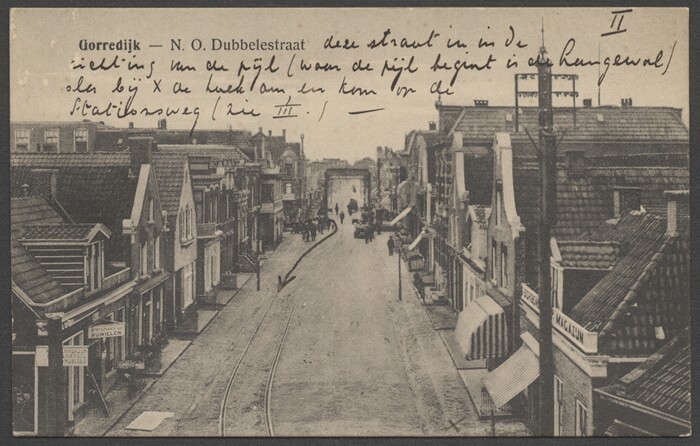 II
Gorredijk — N. O. Dubbelestraat deze straat in in de
richting van de pijl (waar de pijl begint is de Langewal)
sla bij X de hoek om en kom op de
Stationsweg (zie III.) —
RIJWIELEN
MAGAZIJN
X